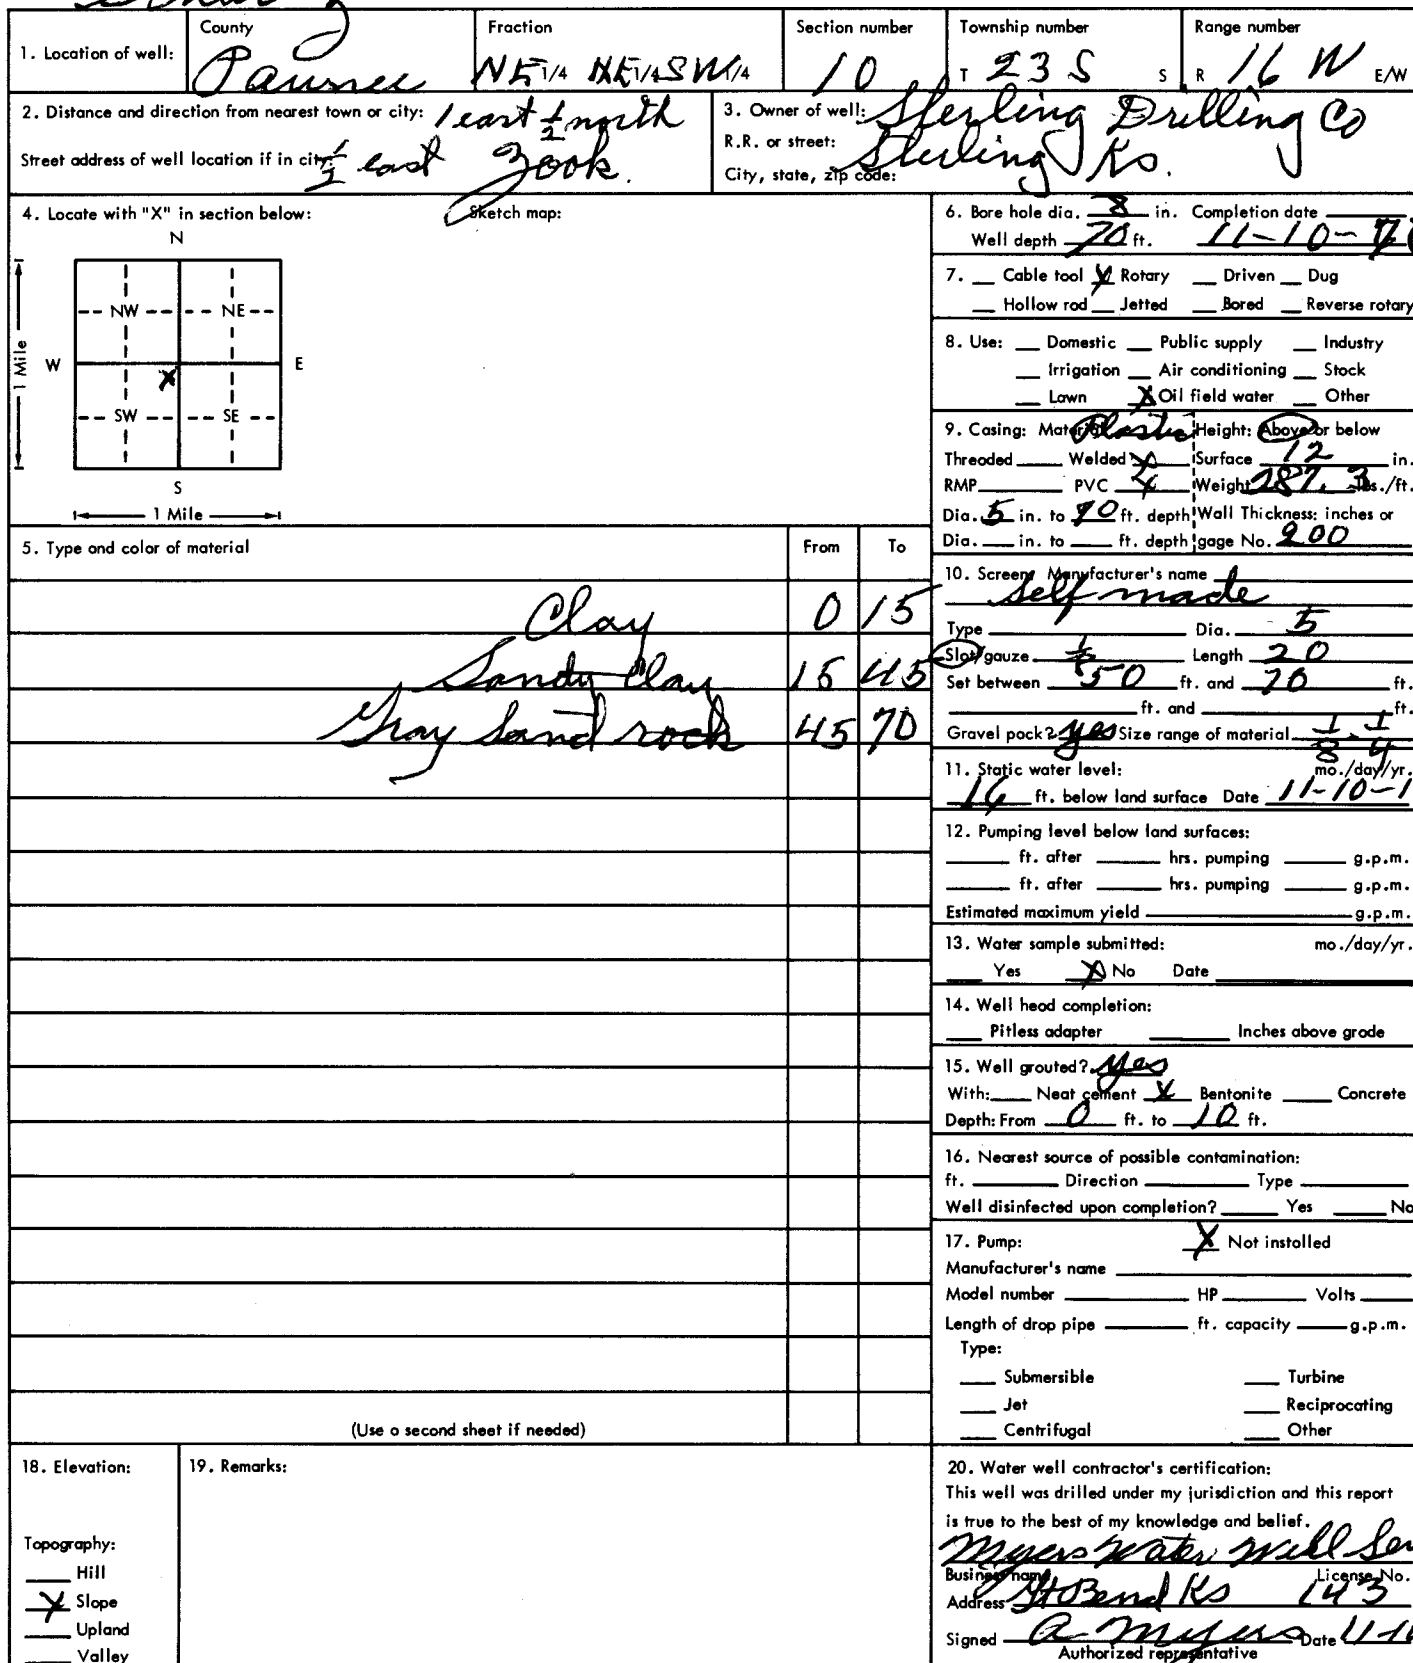 1. Location of well: County Pawnee Fraction NE 1/4 NE 1/4 SW 1/4 Section number 10 Township number T 23 S S Range number R 16 W E/W
2. Distance and direction from nearest town or city: 1 east 1/2 north
Street address of well location if in city: 1/2 east Zook.
3. Owner of well: Sterling Drilling Co
R.R. or street:
City, state, zip code: Sterling Ks.
4. Locate with "X" in section below: Sketch map:
N
NW NE
W X E
1 Mile
SW SE
S
1 Mile
5. Type and color of material From To
Clay 0 15
Sandy Clay 15 45
Gray Sand rock 45 70
(Use a second sheet if needed)
6. Bore hole dia. 8 in. Completion date
Well depth 70 ft. 11-10-
7. Cable tool X Rotary Driven Dug
Hollow rod Jetted Bored Reverse rotary
8. Use: Domestic Public supply Industry
Irrigation Air conditioning Stock
Lawn X Oil field water Other
9. Casing: Material Plastic Height: Above or below
Threaded Welded X Surface 12 in.
RMP PVC X Weight 287.3 lbs./ft.
Dia. 5 in. to 70 ft. depth Wall Thickness: inches or
Dia. in. to ft. depth gage No. 200
10. Screen: Manufacturer's name
Self made
Type Dia. 5
Slot/gauze 1/8 Length 20
Set between 50 ft. and 70 ft.
ft. and ft.
Gravel pack? yes Size range of material 1/8 - 1/4
11. Static water level: mo./day/yr.
16 ft. below land surface Date 11-10-
12. Pumping level below land surfaces:
ft. after hrs. pumping g.p.m.
ft. after hrs. pumping g.p.m.
Estimated maximum yield g.p.m.
13. Water sample submitted: mo./day/yr.
Yes X No Date
14. Well head completion:
Pitless adapter Inches above grade
15. Well grouted? yes
With: Neat cement X Bentonite Concrete
Depth: From 0 ft. to 10 ft.
16. Nearest source of possible contamination:
ft. Direction Type
Well disinfected upon completion? Yes No
17. Pump: X Not installed
Manufacturer's name
Model number HP Volts
Length of drop pipe ft. capacity g.p.m.
Type:
Submersible Turbine
Jet Reciprocating
Centrifugal Other
18. Elevation:
Topography:
Hill
X Slope
Upland
Valley
19. Remarks:
20. Water well contractor's certification:
This well was drilled under my jurisdiction and this report
is true to the best of my knowledge and belief.
Myers Water Well Ser
Business name License No.
Address Gt Bend Ks 143
Signed A Myers Date 11-1
Authorized representative